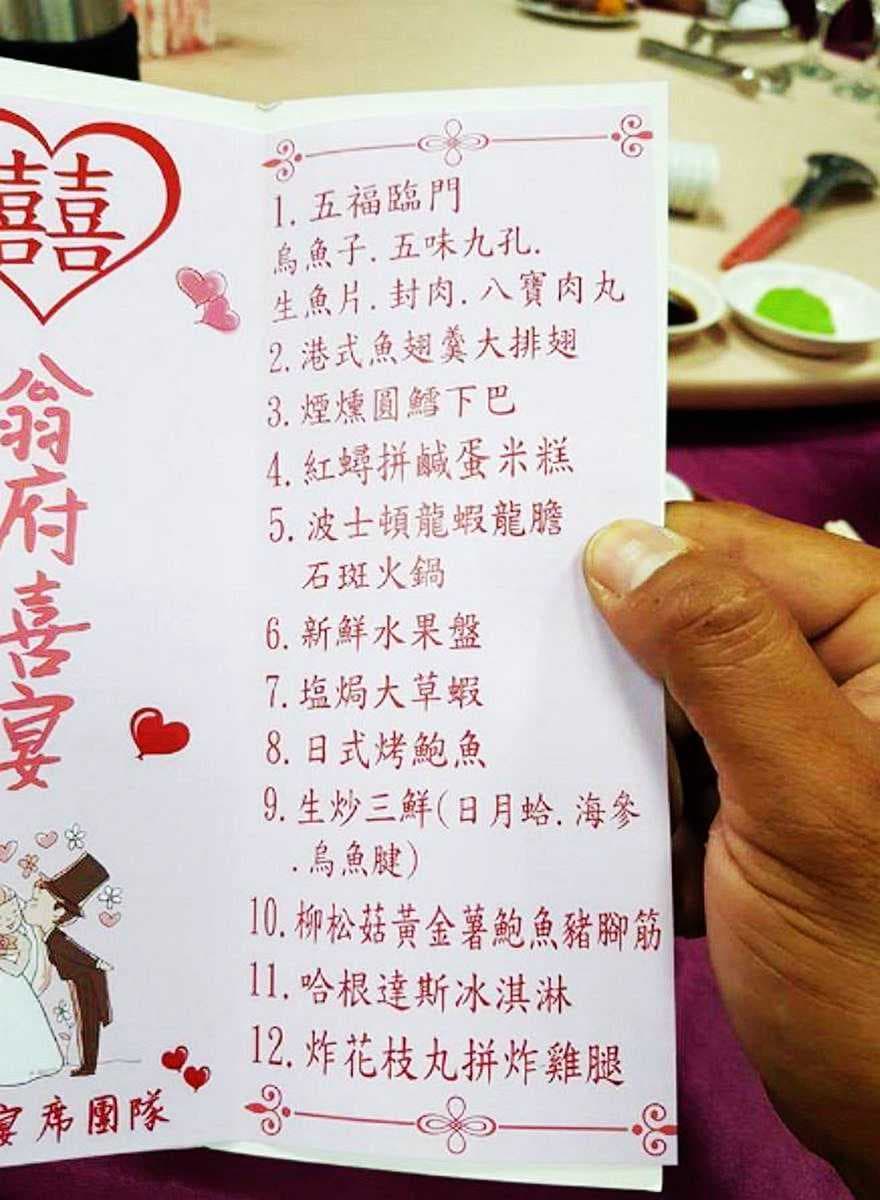 囍
翁府喜宴
宴席團隊
1. 五福臨門
烏魚子.五味九孔.
生魚片.封肉.八寶肉丸
2. 港式魚翅羹大排翅
3. 煙燻圓鱈下巴
4. 紅蟳拼鹹蛋米糕
5. 波士頓龍蝦龍膽
石斑火鍋
6. 新鮮水果盤
7. 塩焗大草蝦
8. 日式烤鮑魚
9. 生炒三鮮(日月蛤.海參
.烏魚腱)
10. 柳松菇黃金薯鮑魚豬腳筋
11. 哈根達斯冰淇淋
12. 炸花枝丸拼炸雞腿